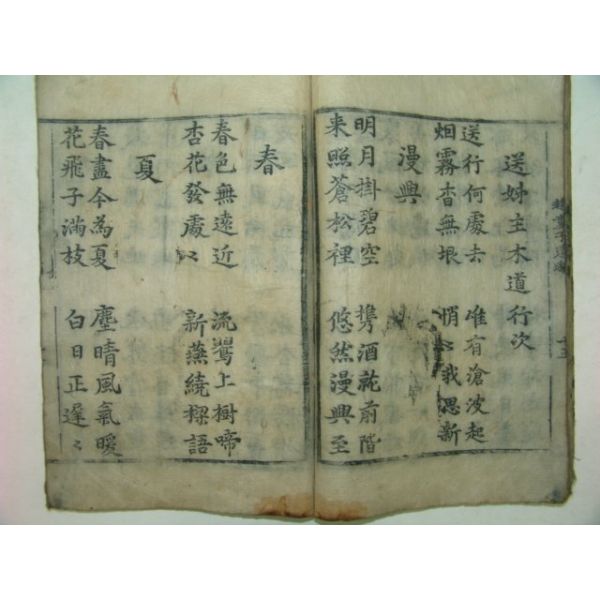 送姊主木道行次
送行何處去　唯有滄波起
烟霧杳無垠　悄〻我思新
漫興
明月掛碧空　携酒花前階
来照蒼松裡　悠然漫興至
春
春色無遠近　流鶯上樹啼
杏花發處〻　新燕繞樑語
夏
春盡今為夏　塵晴風氣暖
花飛子滿枝　白日正遲〻